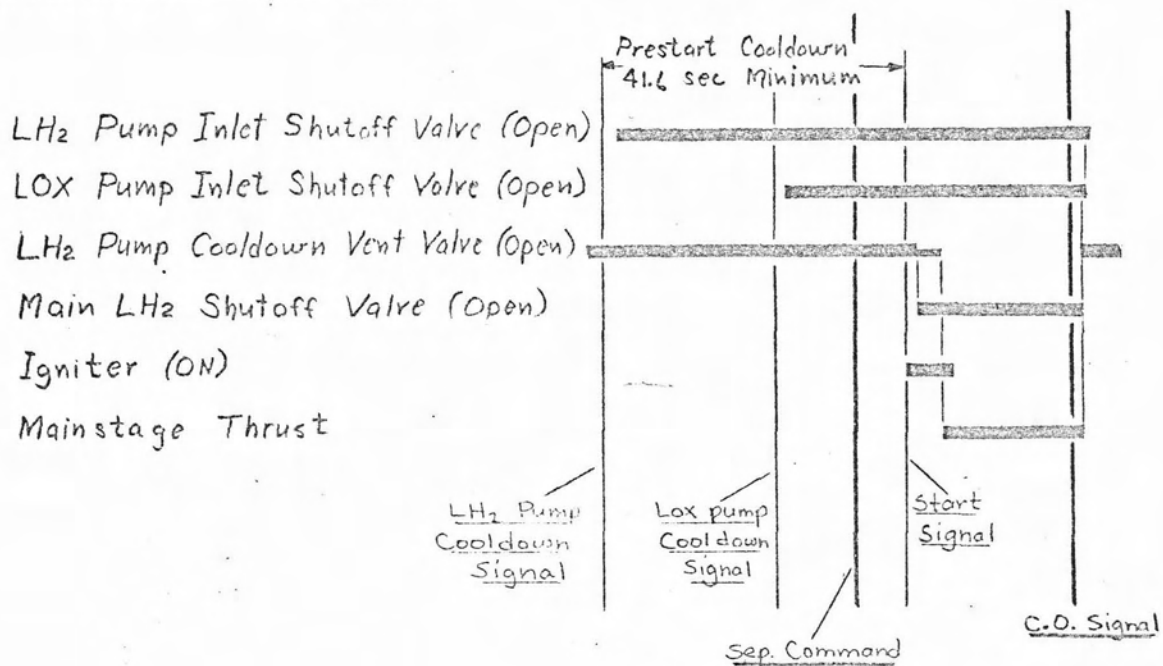 Prestart Cooldown
41.6 sec Minimum
LH2 Pump Inlet Shutoff Valve (Open)
LOX Pump Inlet Shutoff Valve (Open)
LH2 Pump Cooldown Vent Valve (Open)
Main LH2 Shutoff Valve (Open)
Igniter (ON)
Mainstage Thrust
LH2 Pump
Cooldown
Signal
Lox pump
Cooldown
Signal
Start
Signal
Sep. Command
C.O. Signal